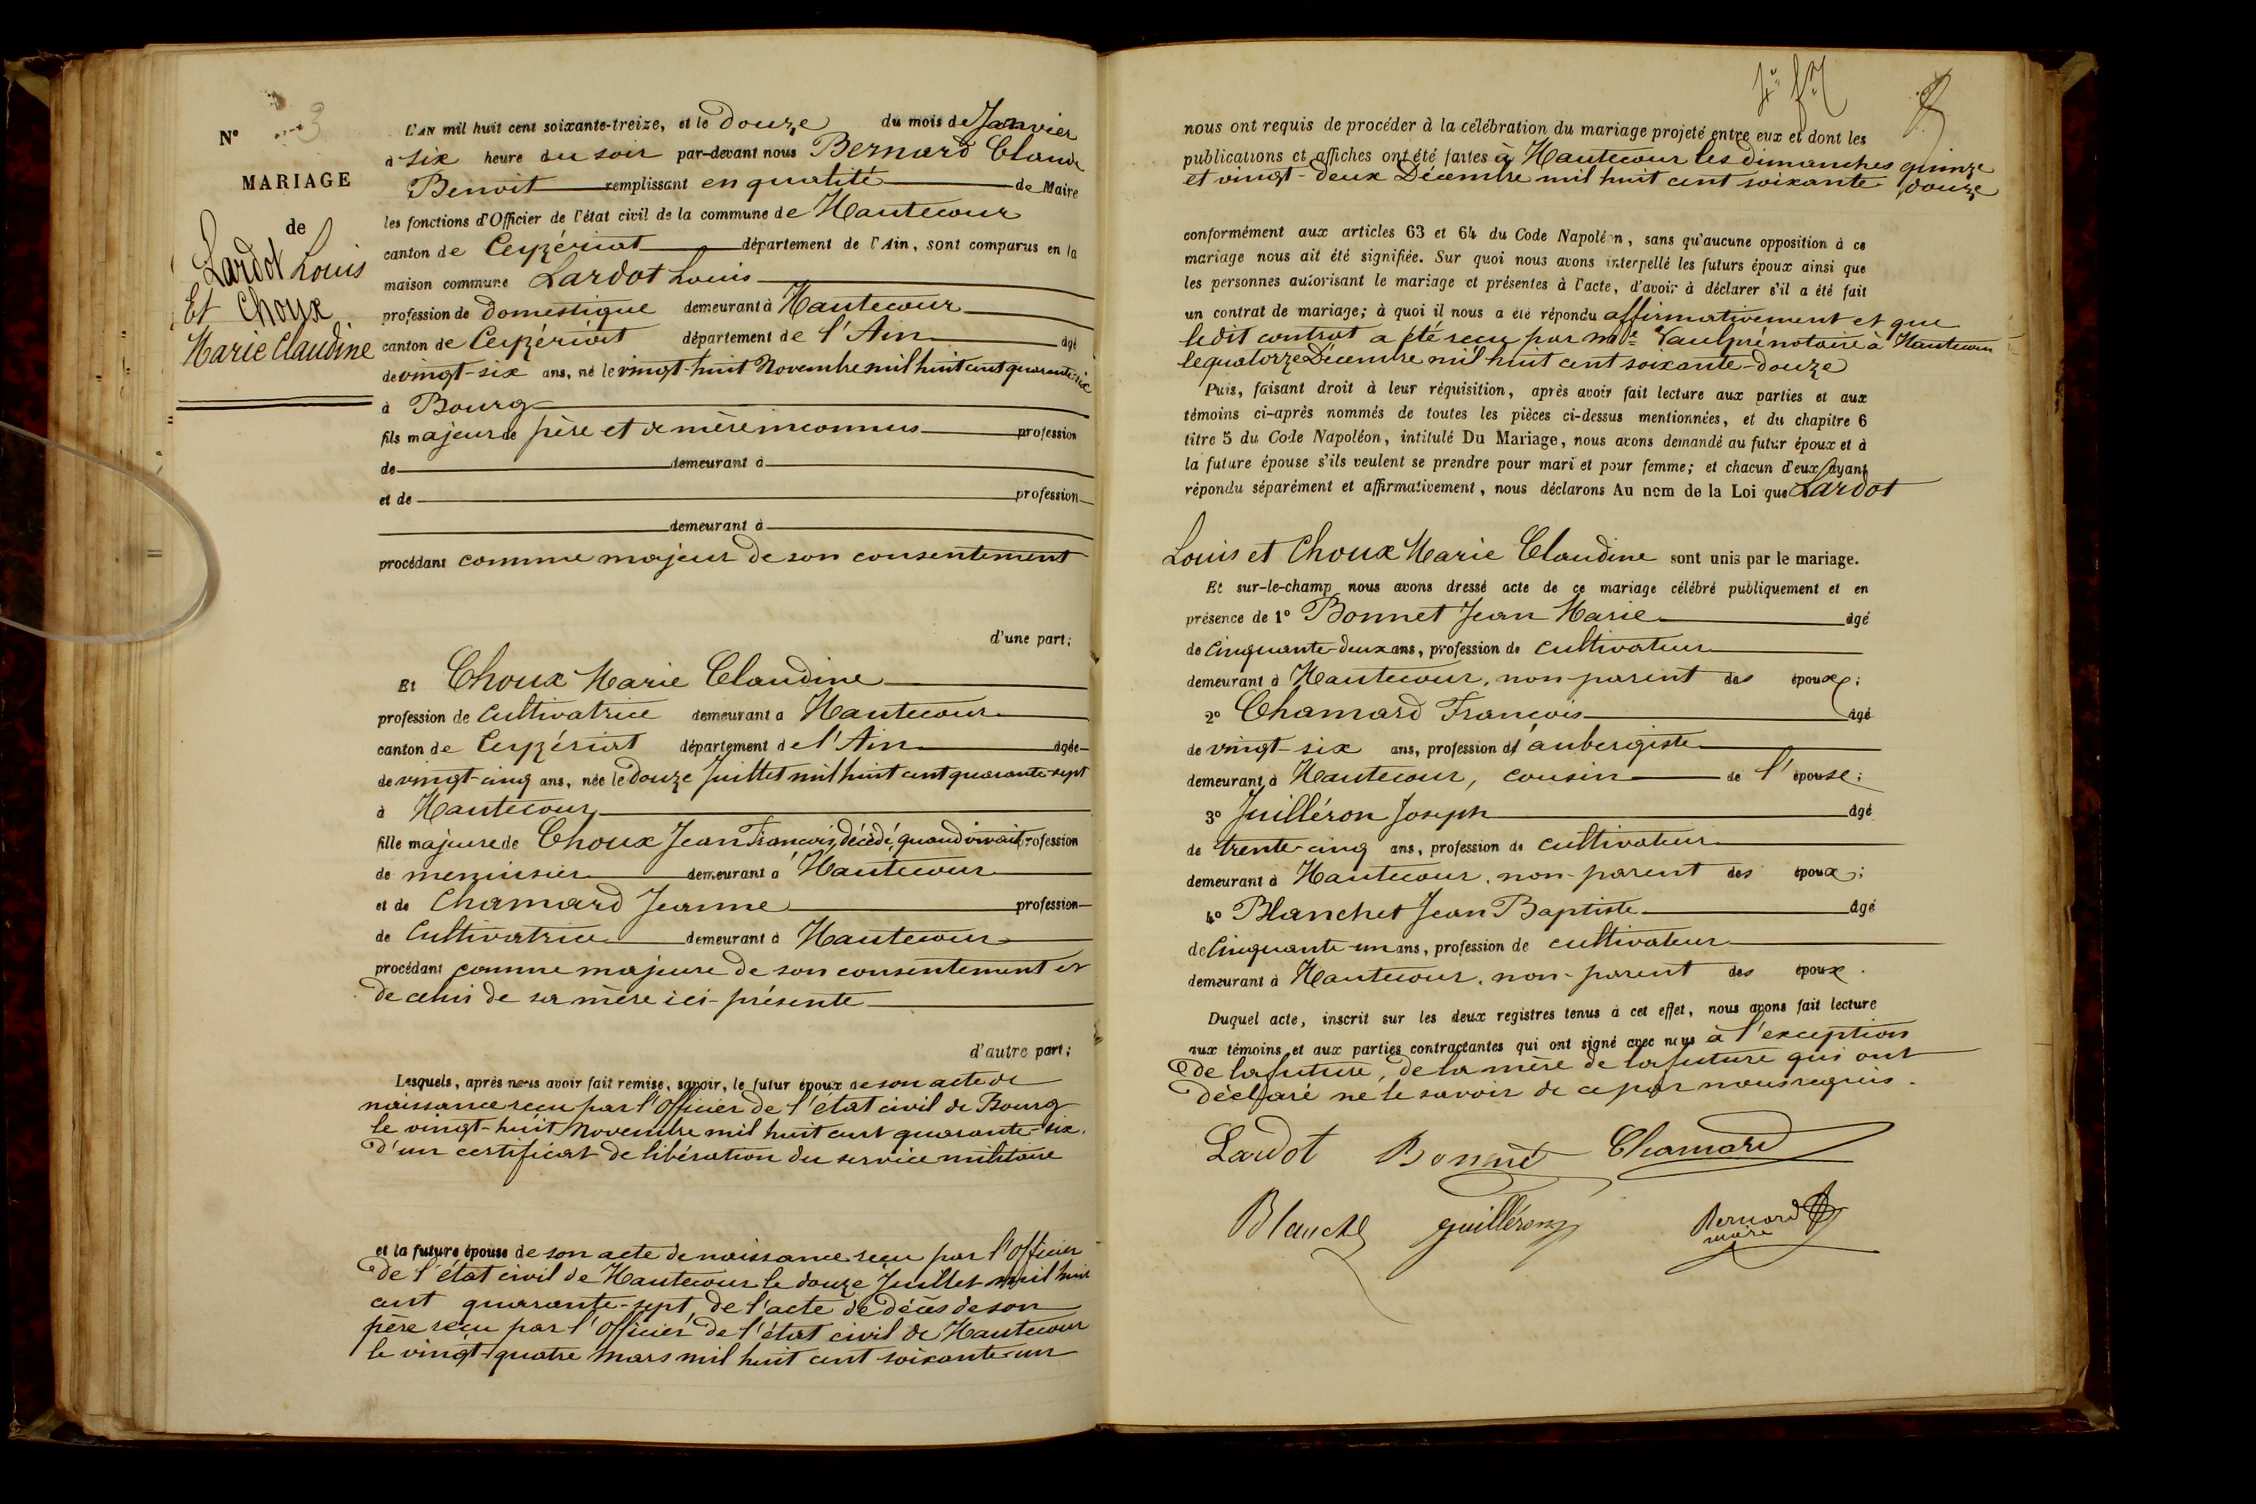 N° 3
MARIAGE
de
Lardot Louis
Et Choux
Marie Claudine
L'AN mil huit cent soixante-treize, et le douze du mois de Janvier
à six heure du soir par-devant nous Bernard Claude
Benoit remplissant en qualité de Maire
les fonctions d'Officier de l'état civil de la commune de Hautecour
canton de Ceyzériat département de l'Ain, sont comparus en la
maison commune Lardot Louis
profession de domestique demeurant à Hautecour
canton de Ceyzériat département de l'Ain âgé
de vingt-six ans, né le vingt-huit Novembre mil huit cent quarante-six
à Bourg
fils majeur de père et de mère inconnus profession
de demeurant à
et de profession
demeurant à
procédant comme majeur de son consentement
d'une part;
Et Choux Marie Claudine
profession de cultivatrice demeurant à Hautecour
canton de Ceyzériat département de l'Ain âgée
de vingt-cinq ans, née le douze Juillet mil huit cent quarante-sept
à Hautecour
fille majeure de Choux Jean François, décédé, quand vivait profession
de menuisier demeurant à Hautecour
et de Chamard Jeanne profession
de Cultivatrice demeurant à Hautecour
procédant comme majeure de son consentement et
de celui de sa mère ici-présente
d'autre part;
Lesquels, après nous avoir fait remise, savoir, le futur époux de son acte de
naissance reçu par l'Officier de l'état civil de Bourg
le vingt-huit Novembre mil huit cent quarante-six.
d'un certificat de libération du service militaire
et la future épouse de son acte de naissance reçu par l'Officier
de l'état civil de Hautecour le douze Juillet mil huit
cent quarante-sept, de l'acte de décès de son
père reçu par l'Officier de l'état civil de Hautecour
le vingt-quatre mars mil huit cent soixante-un
nous ont requis de procéder à la célébration du mariage projeté entre eux et dont les
publications et affiches ont été faites à Hautecour les dimanches quinze
et vingt-deux Décembre mil huit cent soixante douze
conformément aux articles 63 et 64 du Code Napoléon, sans qu'aucune opposition à ce
mariage nous ait été signifiée. Sur quoi nous avons interpellé les futurs époux ainsi que
les personnes autorisant le mariage et présentes à l'acte, d'avoir à déclarer s'il a été fait
un contrat de mariage; à quoi il nous a été répondu affirmativement et que
le dit contrat a été reçu par Me Vaulpré notaire à Hautecour
le quatorze Décembre mil huit cent soixante-douze
Puis, faisant droit à leur réquisition, après avoir fait lecture aux parties et aux
témoins ci-après nommés de toutes les pièces ci-dessus mentionnées, et du chapitre 6
titre 5 du Code Napoléon, intitulé Du Mariage, nous avons demandé au futur époux et à
la future épouse s'ils veulent se prendre pour mari et pour femme; et chacun d'eux ayant
répondu séparément et affirmativement, nous déclarons Au nom de la Loi que Lardot
Louis et Choux Marie Claudine sont unis par le mariage.
Et sur-le-champ nous avons dressé acte de ce mariage célébré publiquement et en
présence de 1° Bonnet Jean Marie âgé
de Cinquante-deux ans, profession de cultivateur
demeurant à Hautecour, non-parent des époux;
2° Chamard François âgé
de vingt-six ans, profession d'aubergiste
demeurant à Hautecour, cousin de l'épouse;
3° Juilléron Joseph âgé
de trente-cinq ans, profession de cultivateur
demeurant à Hautecour, non-parent des époux;
4° Blanchet Jean Baptiste âgé
de Cinquante-un ans, profession de cultivateur
demeurant à Hautecour, non-parent des époux.
Duquel acte, inscrit sur les deux registres tenus à cet effet, nous avons fait lecture
aux témoins et aux parties contractantes qui ont signé avec nous à l'exception
de la future, de la mère de la future qui ont
déclaré ne le savoir de ce par nous requis.
Lardot Bonnet Chamard
Blanchet guilléron Bernard
maire